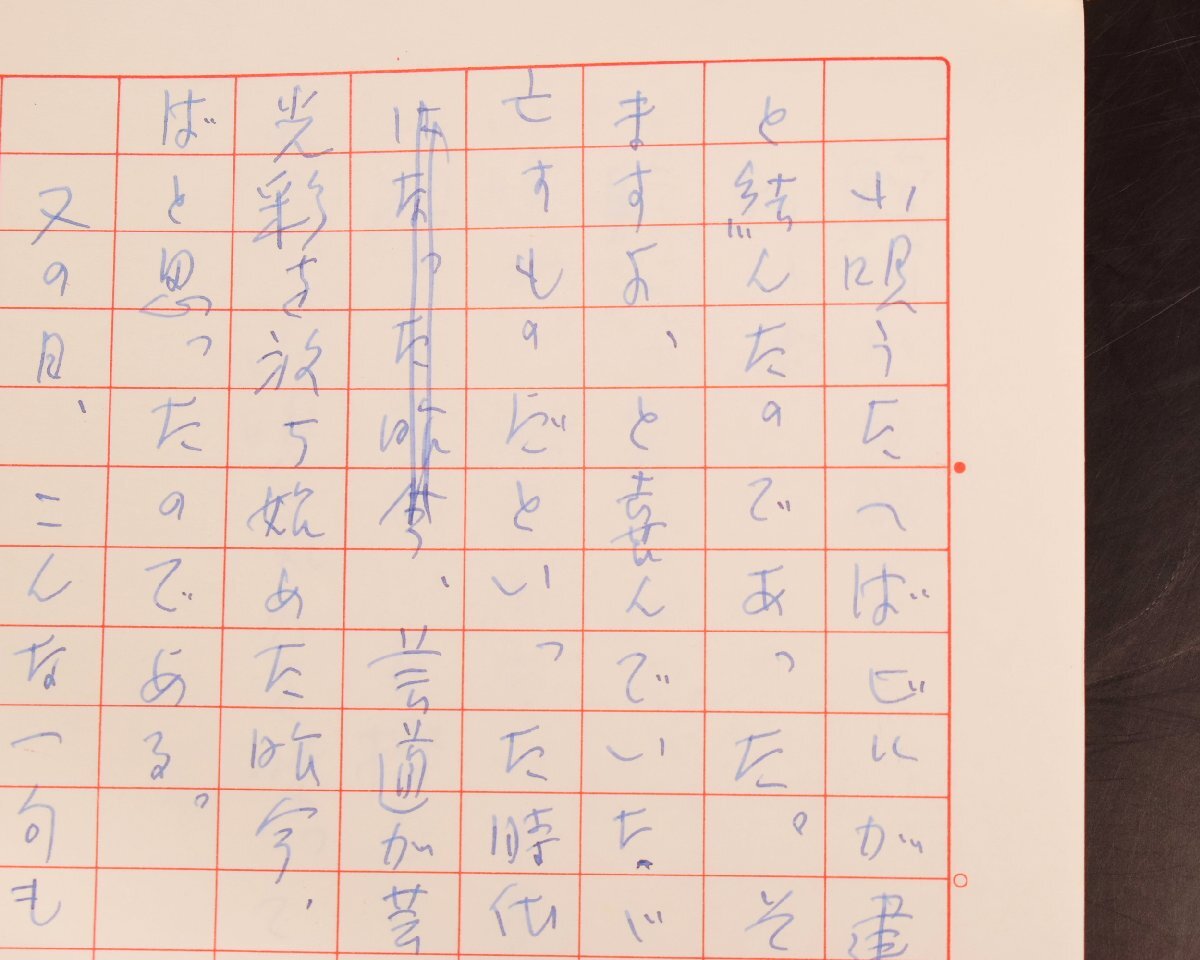 小唄うたへばビルが建
と結んたのであった。そ
ますよ、と喜んでいた
亡すものだといった時代
はなった昨今、芸道が芸
光彩を放ち始めた昨今、
ばと思ったのである。
又の日、こんな一句も